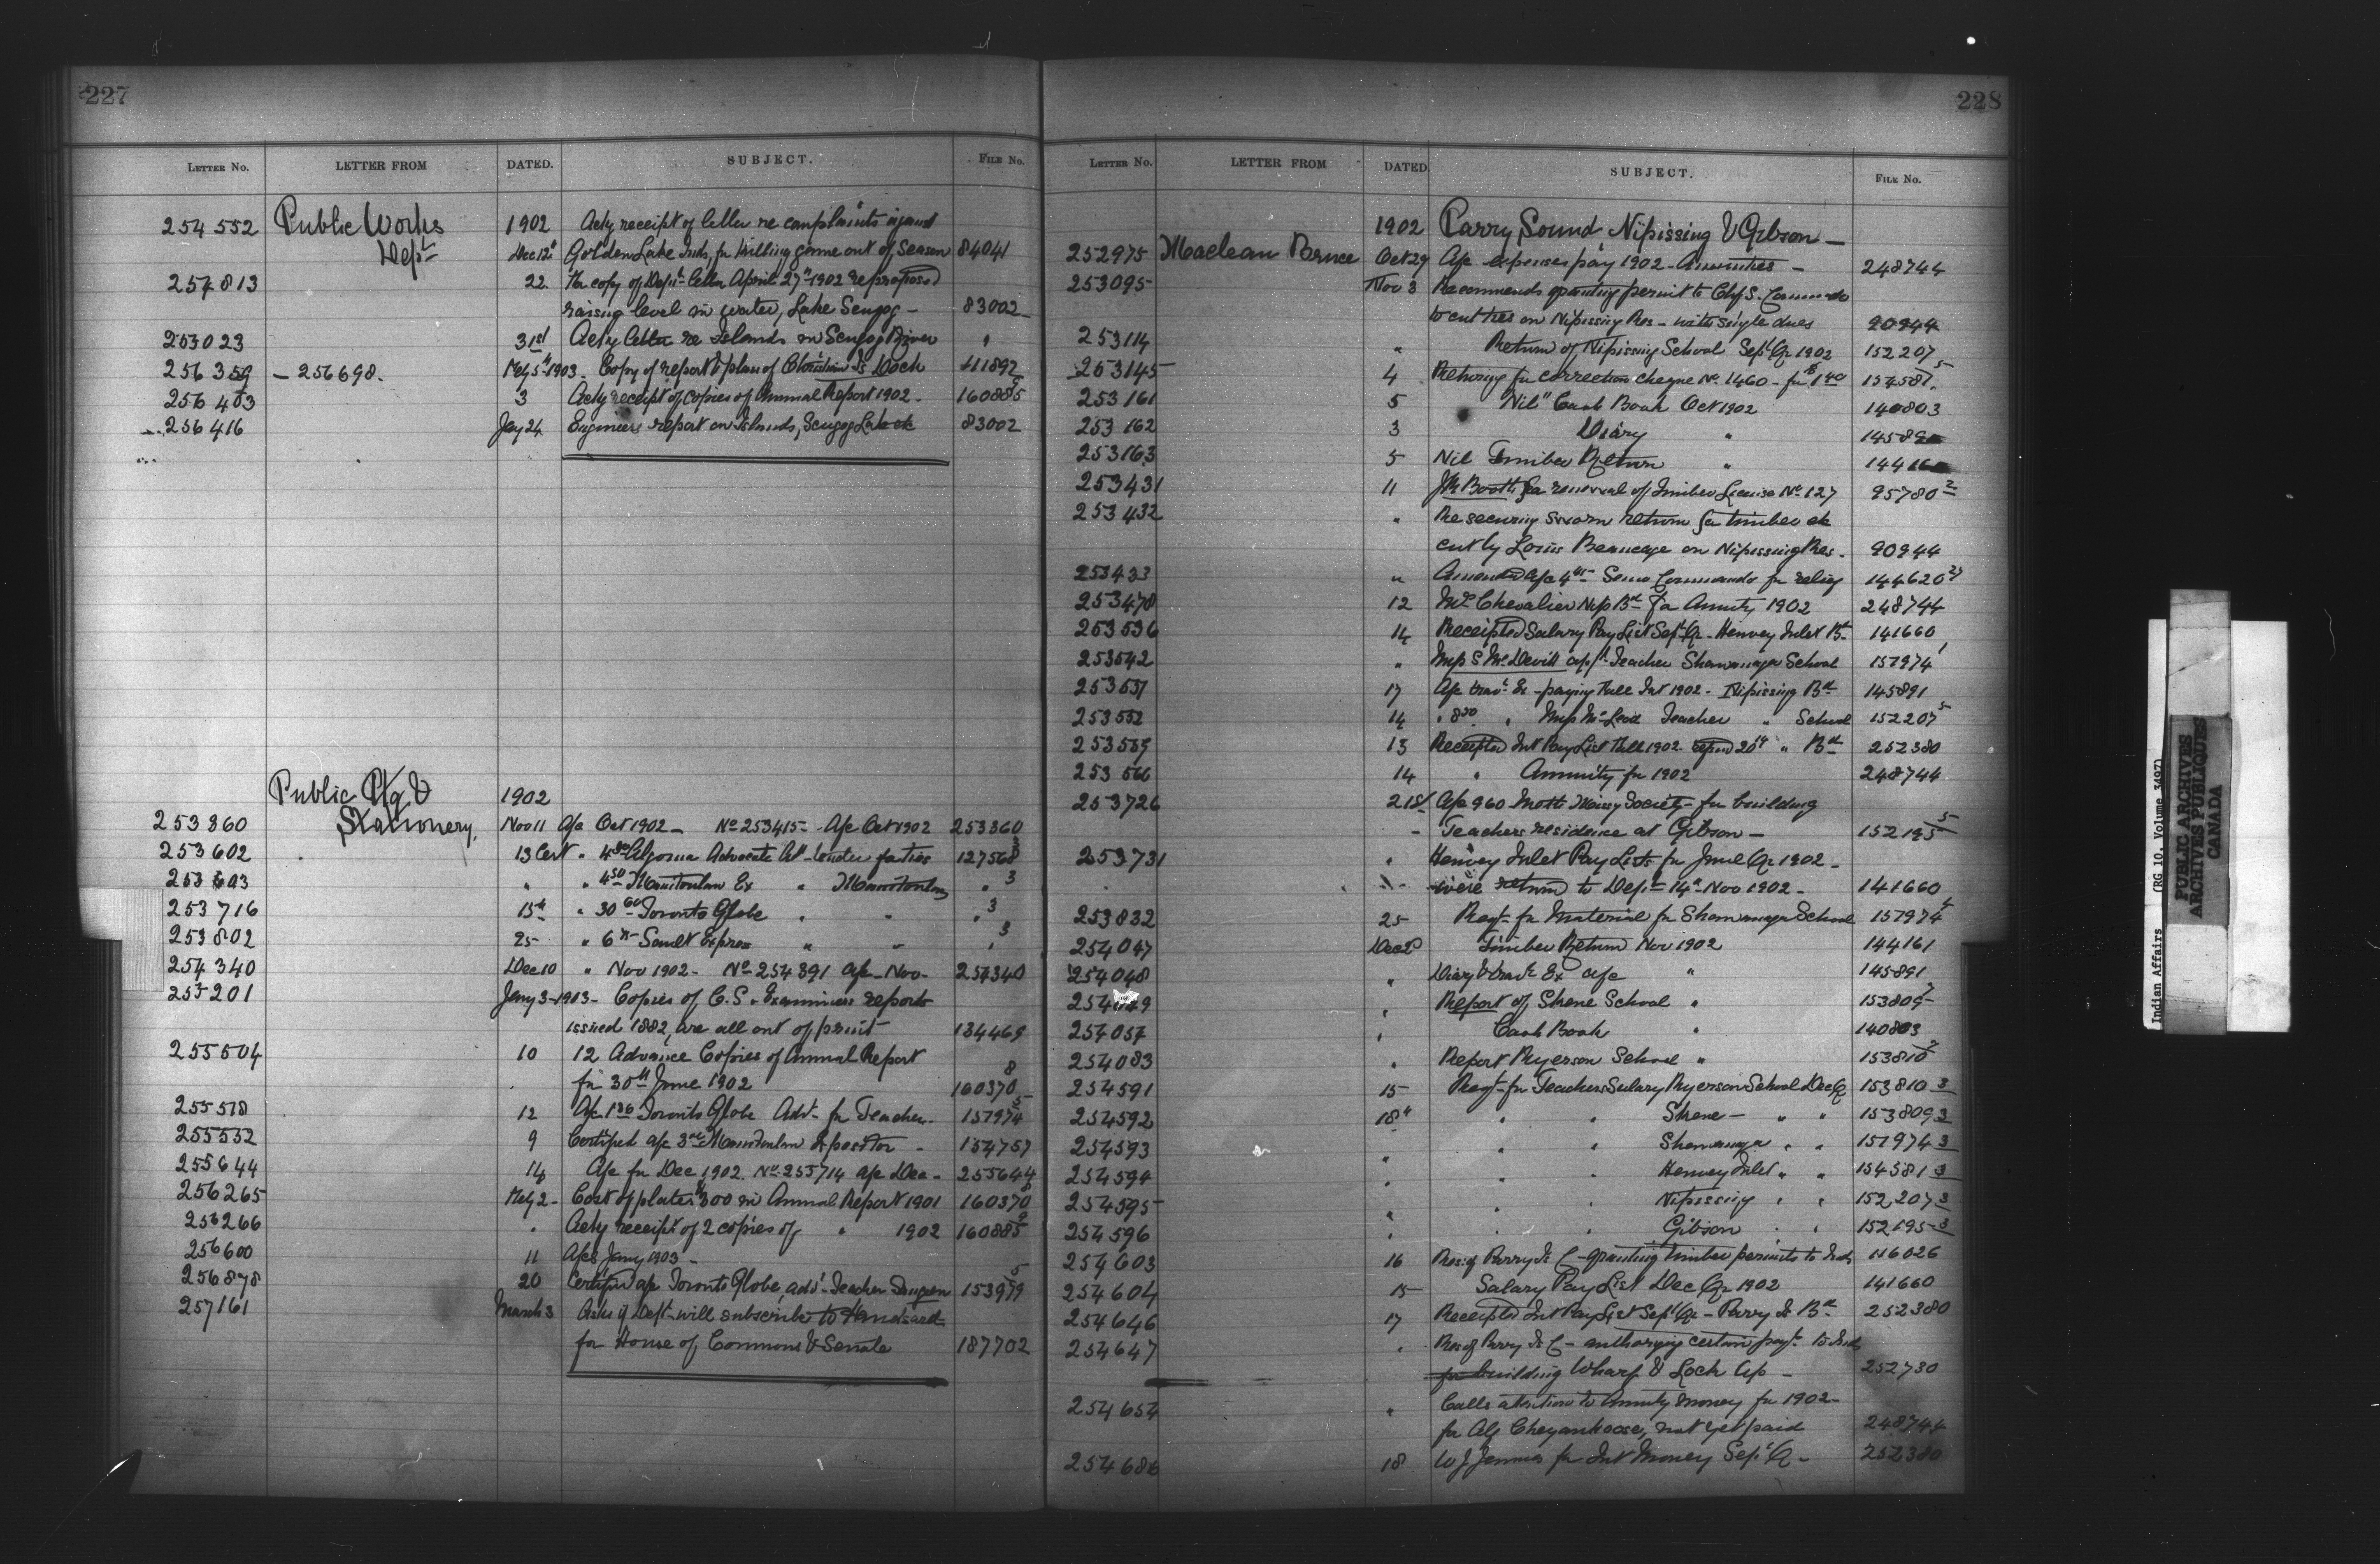 227
LETTER NO. LETTER FROM DATED. SUBJECT. FILE NO.
254552 Public Works 1902 Ackg receipt of letter re complaints against
Dept Dec 12th Golden Lake Inds, for killing game out of Season 84041
254813 22. For copy of Dept letter April 27th 1902 re proposed
raising level in water, Lake Scugog - 83002
253023 31st Ackg letter re Islands in Scugog River "
256359 - 256698. Feby 5th 1903. Copy of report & plan of Christian Is Dock 111892
256403 3 Ackg receipt of copies of Annual Report 1902 - 160885
256416 Jay 24 Engineers report on Islands, Scugog Lake 83002
Public Ptg &
1902
253360 Stationery, Nov 11 A/c Oct 1902 - No 253415 - A/c Oct 1902 253360
253602 13 Cert " 4 80 Algoma Advocate Adt - tender 127568 3
253603 " " 4 50 Manitoulin Ex " Manitoulin " 3
253716 15th " 30 60 Toronto Globe " " " 3
253802 25 " 6 Sault Express " " " 3
254340 Dec 10 " Nov 1902 - No 254391 a/c Nov - 254340
255201 Jany 3 - 1903 - Copies of C.S. Examiners reports
issued 1882, are all out of print 134469
255504 10 12 Advance Copies of Annual Report
for 30th June 1902 160370 8
255518 12 A/c Toronto Globe Advt - for Teacher - 157974 5
255552 9 Certified a/c Manitoulin Expositor - 154757
255644 14 A/c for Dec 1902. No 255714 a/c Dec - 255644
256265 Feby 2 - Cost of plates 300 in Annual Report 1901 160370 8
256266 " Ackg receipt of 2 copies of " 1902 160885 9
256600 11 A/cs Jany 1903 -
256878 20 Certified a/c Toronto Globe, advt - Teacher 153979 5
257161 March 3 Asks if Dept - will subscribe to Hansard
for House of Commons & Senate 187702
228
LETTER NO. LETTER FROM DATED SUBJECT. FILE NO.
1902 Parry Sound, Nipissing & Gibson -
252975 Maclean Bruce Oct 29 A/c expenses pay 1902 - Annuities - 248744
253095 Nov 3 Recommends granting permit to Chf S. Commando
to cut ties on Nipissing Res - with single dues 90944
253114 " Return of Nipissing School Sept Qr 1902 152207 5
253145 4 Returning for correction cheque No 1460 - for 154581
253161 5 "Nil" Cash Book Oct 1902 140803
253162 3 Diary " 14589
253163 5 Nil Timber Return " 14416
253431 11 J R Booth for renewal of Timber License No 127 95780 2
253432 " Re securing sworn return for timber etc
cut by Louis Beaucage on Nipissing Res - 90944
253433 " Amended a/c Commando for relief 144620
253478 12 Mrs Chevalier Nip Bd for Annuity 1902 248744
253536 14 Receipted Salary Pay List Sept Qr - Henvey Inlet Bd 141660
253542 " Miss S McDevitt app'd Teacher Shawanaga School 157974 1
253551 17 A/c travl Ex - paying Fall Int 1902 - Nipissing Bd 145891
253552 14 " 8 50 " Miss McLeod Teacher " School 152207 5
253559 13 Receipted Int Pay List Fall 1902. " Bd 252380
253566 14 " Annuity for 1902 248744
253726 21st A/c 960 Meth Missy Society for building
Teachers residence at Gibson - 152195 5
253731 " Henvey Inlet Pay Lists for June Qr 1902 -
were return to Dept 14th Nov 1902 - 141660
253832 25 Reqt for Material for Shawanaga School 157974 4
254047 Dec 2 Timber Return Nov 1902 144161
254048 " Diary & travl Ex a/c " 145891
254049 " Report of Skene School " 153809
254057 " Cash Book " 140803
254083 " Report Ryerson School " 153810 2
254591 15 Reqt - for Teachers Salary Ryerson School Dec Q 153810 3
254592 18th " " Skene - " " 153809 3
254593 " " " Shawanaga " " 157974 3
254594 " " " Henvey Inlet " " 154581 3
254595 " " " Nipissing " " 152207 3
254596 " " " Gibson " " 152195 3
254603 16 Res: of Parry Is C - granting timber permits to Inds 116026
254604 15 Salary Pay List Dec Qr 1902 141660
254646 17 Receipted Int Pay List Sept Qr - Parry Is Bd 252380
254647 " Res of Parry Is C - authorizing certain payt to Inds
for building Wharf & Lock Up - 252730
254654 " Calls attention to Annuity money for 1902 -
for Alf Cheyankoose, not yet paid 248744
254686 18 W J for Int Money Sept Q - 252380
Indian Affairs (RG 10, Volume 3497)
PUBLIC ARCHIVES
ARCHIVES PUBLIQUES
CANADA